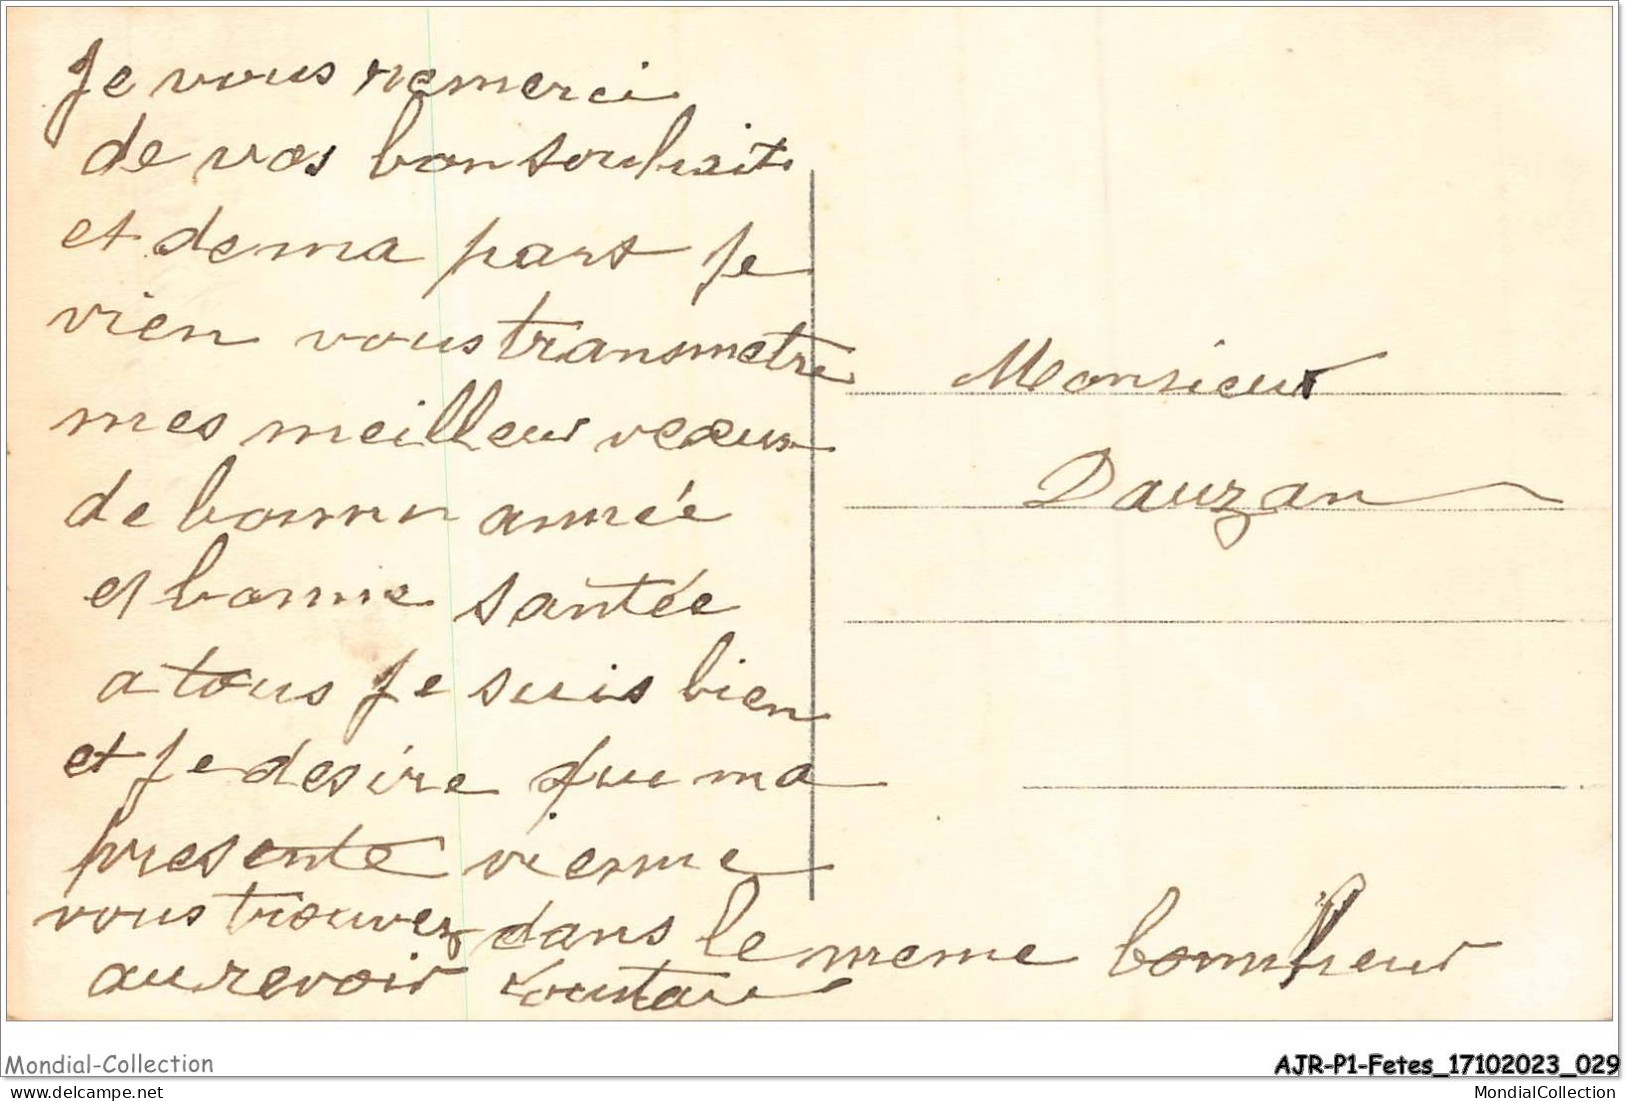 Je vous remerci
de vos bon souhait
et de ma part Je
vien vous transmetre
mes meilleur veaeux
de bonnn année
et bonne santée
a tous Je suis bien
et Je desire que ma
presente vienne
vous trouvez dans le meme bonnheur
au revoir
Monsieur
Dauzan
Mondial-Collection
AJR-P1-Fetes_17102023_029
delcampe.net
MondialCollection